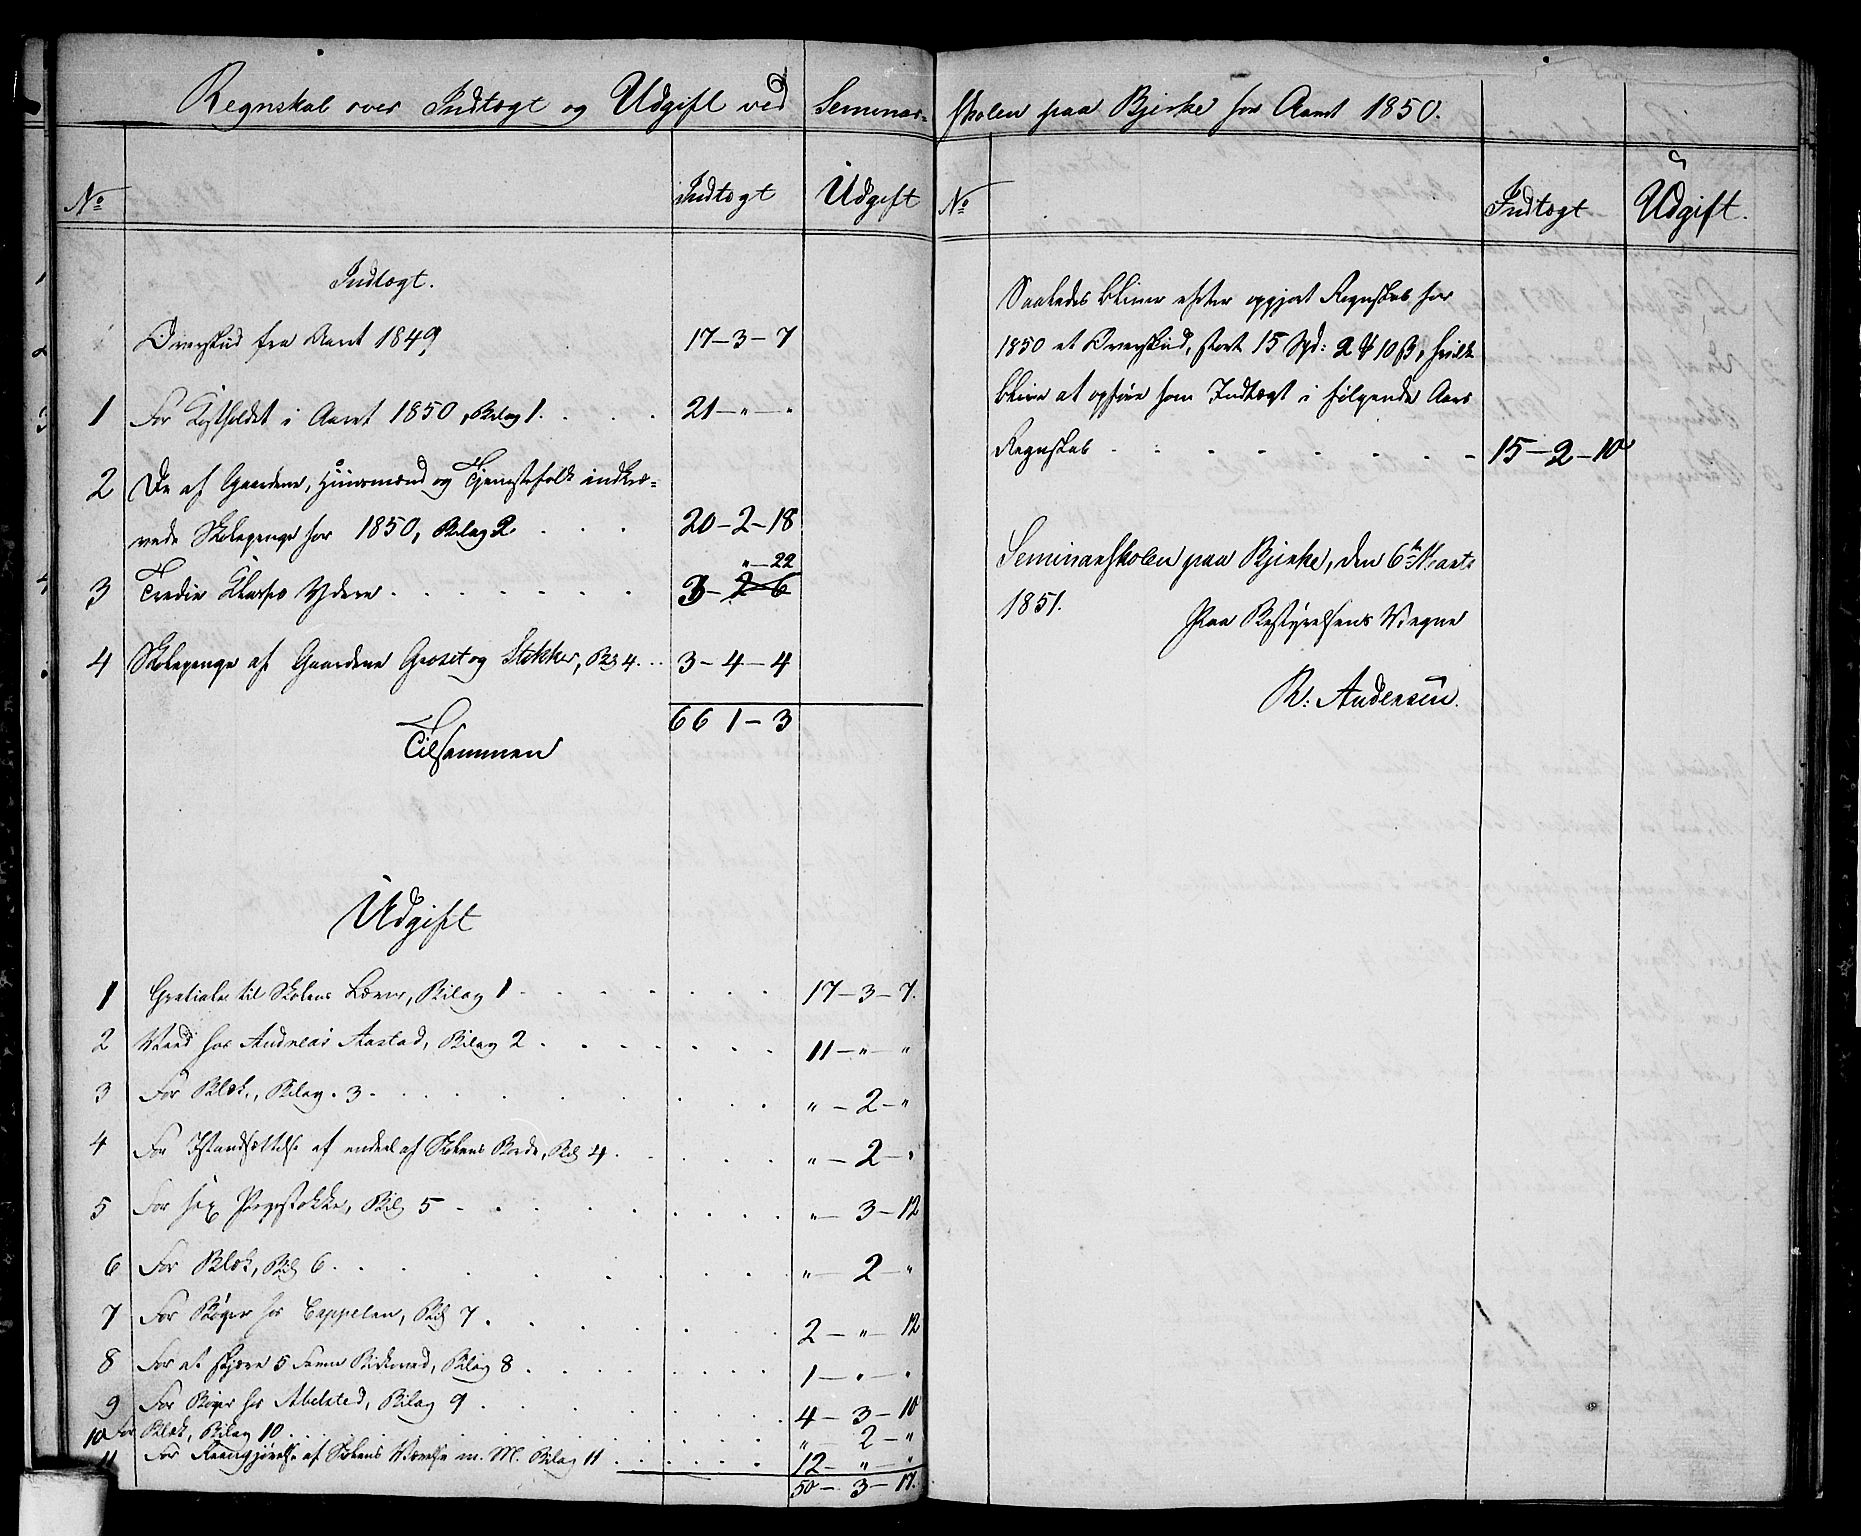 Regnskab over Indtægt og Udgift ved Seminar-
No Indtægt Udgift
Indtægt.
Overskud fra Aaret 1849 17-3-7
1 For Kostholdet i Aaret 1850, Bilag 1. 21-"-"
2 De af Gaardene, Huusmænd og Tjenestefolk indkræ-
vede Skolepenge for 1850, Bilag 2. 20-2-18
"-22
3 Tredie Klasses Ydere 3-2-6
4 Skolepenge af Gaardene Groset og Stokker, Bil 4. 3-4-4
Tilsammen 66 1-3
Udgift
1 Gratiale til Skolens Lærer, Bilag 1 17-3-7.
2 Veed hos Andreas Aastad, Bilag 2 11-"-"
3 For Blæk, Bilag 3. "-2-"
4 For Istandsættelse af endeel af Skolens Borde, Bil 4. "-2-"
5 For sex Pegestokke, Bil 5 "-3-12
6 For Blæk, Bil 6. "-2-"
7 For Bøger hos Cappelen, Bil 7. 2-"-12
8 For at skjære 5 Favne Birkeved, Bilag 8 1-"-"
9 For Bøger hos Abelsted, Bilag 9 4-3-10
10 For Blæk, Bilag 10 "-2-"
11 For Reengjørelse af Skolens Værelse m. M. Bilag 11 12-"-"
50-3-17.
skolen paa Bjerke for Aaret 1850.
No Indtægt Udgift.
Saaledes bliver efter opgjort Regnskab for
1850 et Overskud, stort 15 Spd: 2 ₰ 10 ß, hvilke
blive at opføre som Indtægt i følgende Aars
Regnskab 15-2-10
Seminarskolen paa Bjerke, den 6te Marts
1851.
Paa Bestyrelsens Vegne
R: Andersen.